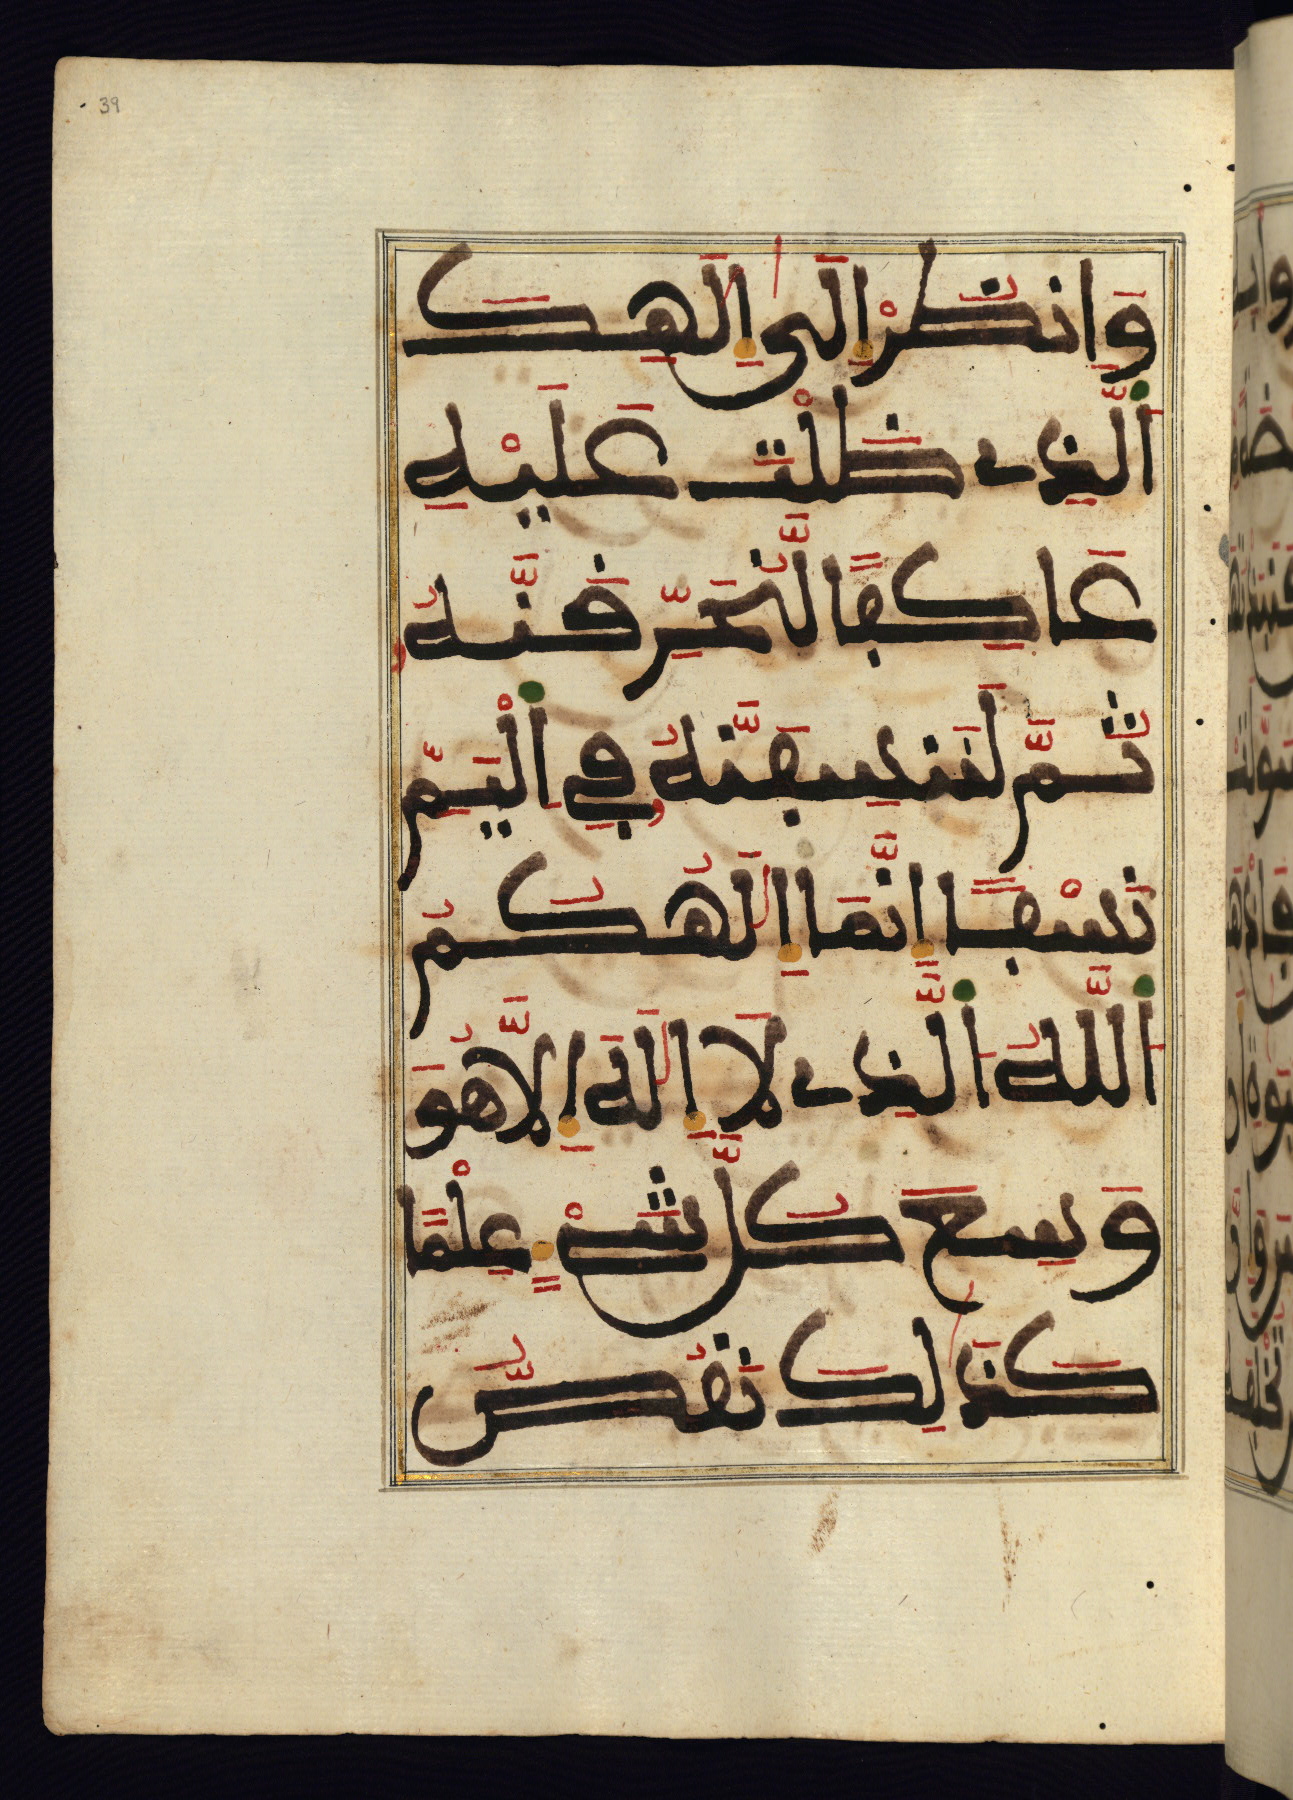 39
وَانظُرْ إِلَىٰ إِلَٰهِكَ
ٱلَّذِى ظَلْتَ عَلَيْهِ
عَاكِفًا لَّنُحَرِّفَنَّهُ
ثُمَّ لَنَنسِفَنَّهُ فِي ٱلْيَمِّ
نَسْفًا إِنَّمَا إِلَٰهُكُمُ
ٱللَّهُ ٱلَّذِى لَا إِلَٰهَ إِلَّا هُوَ
وَسِعَ كُلَّ شَىْءٍ عِلْمًا
كَذَٰلِكَ نَقُصُّ